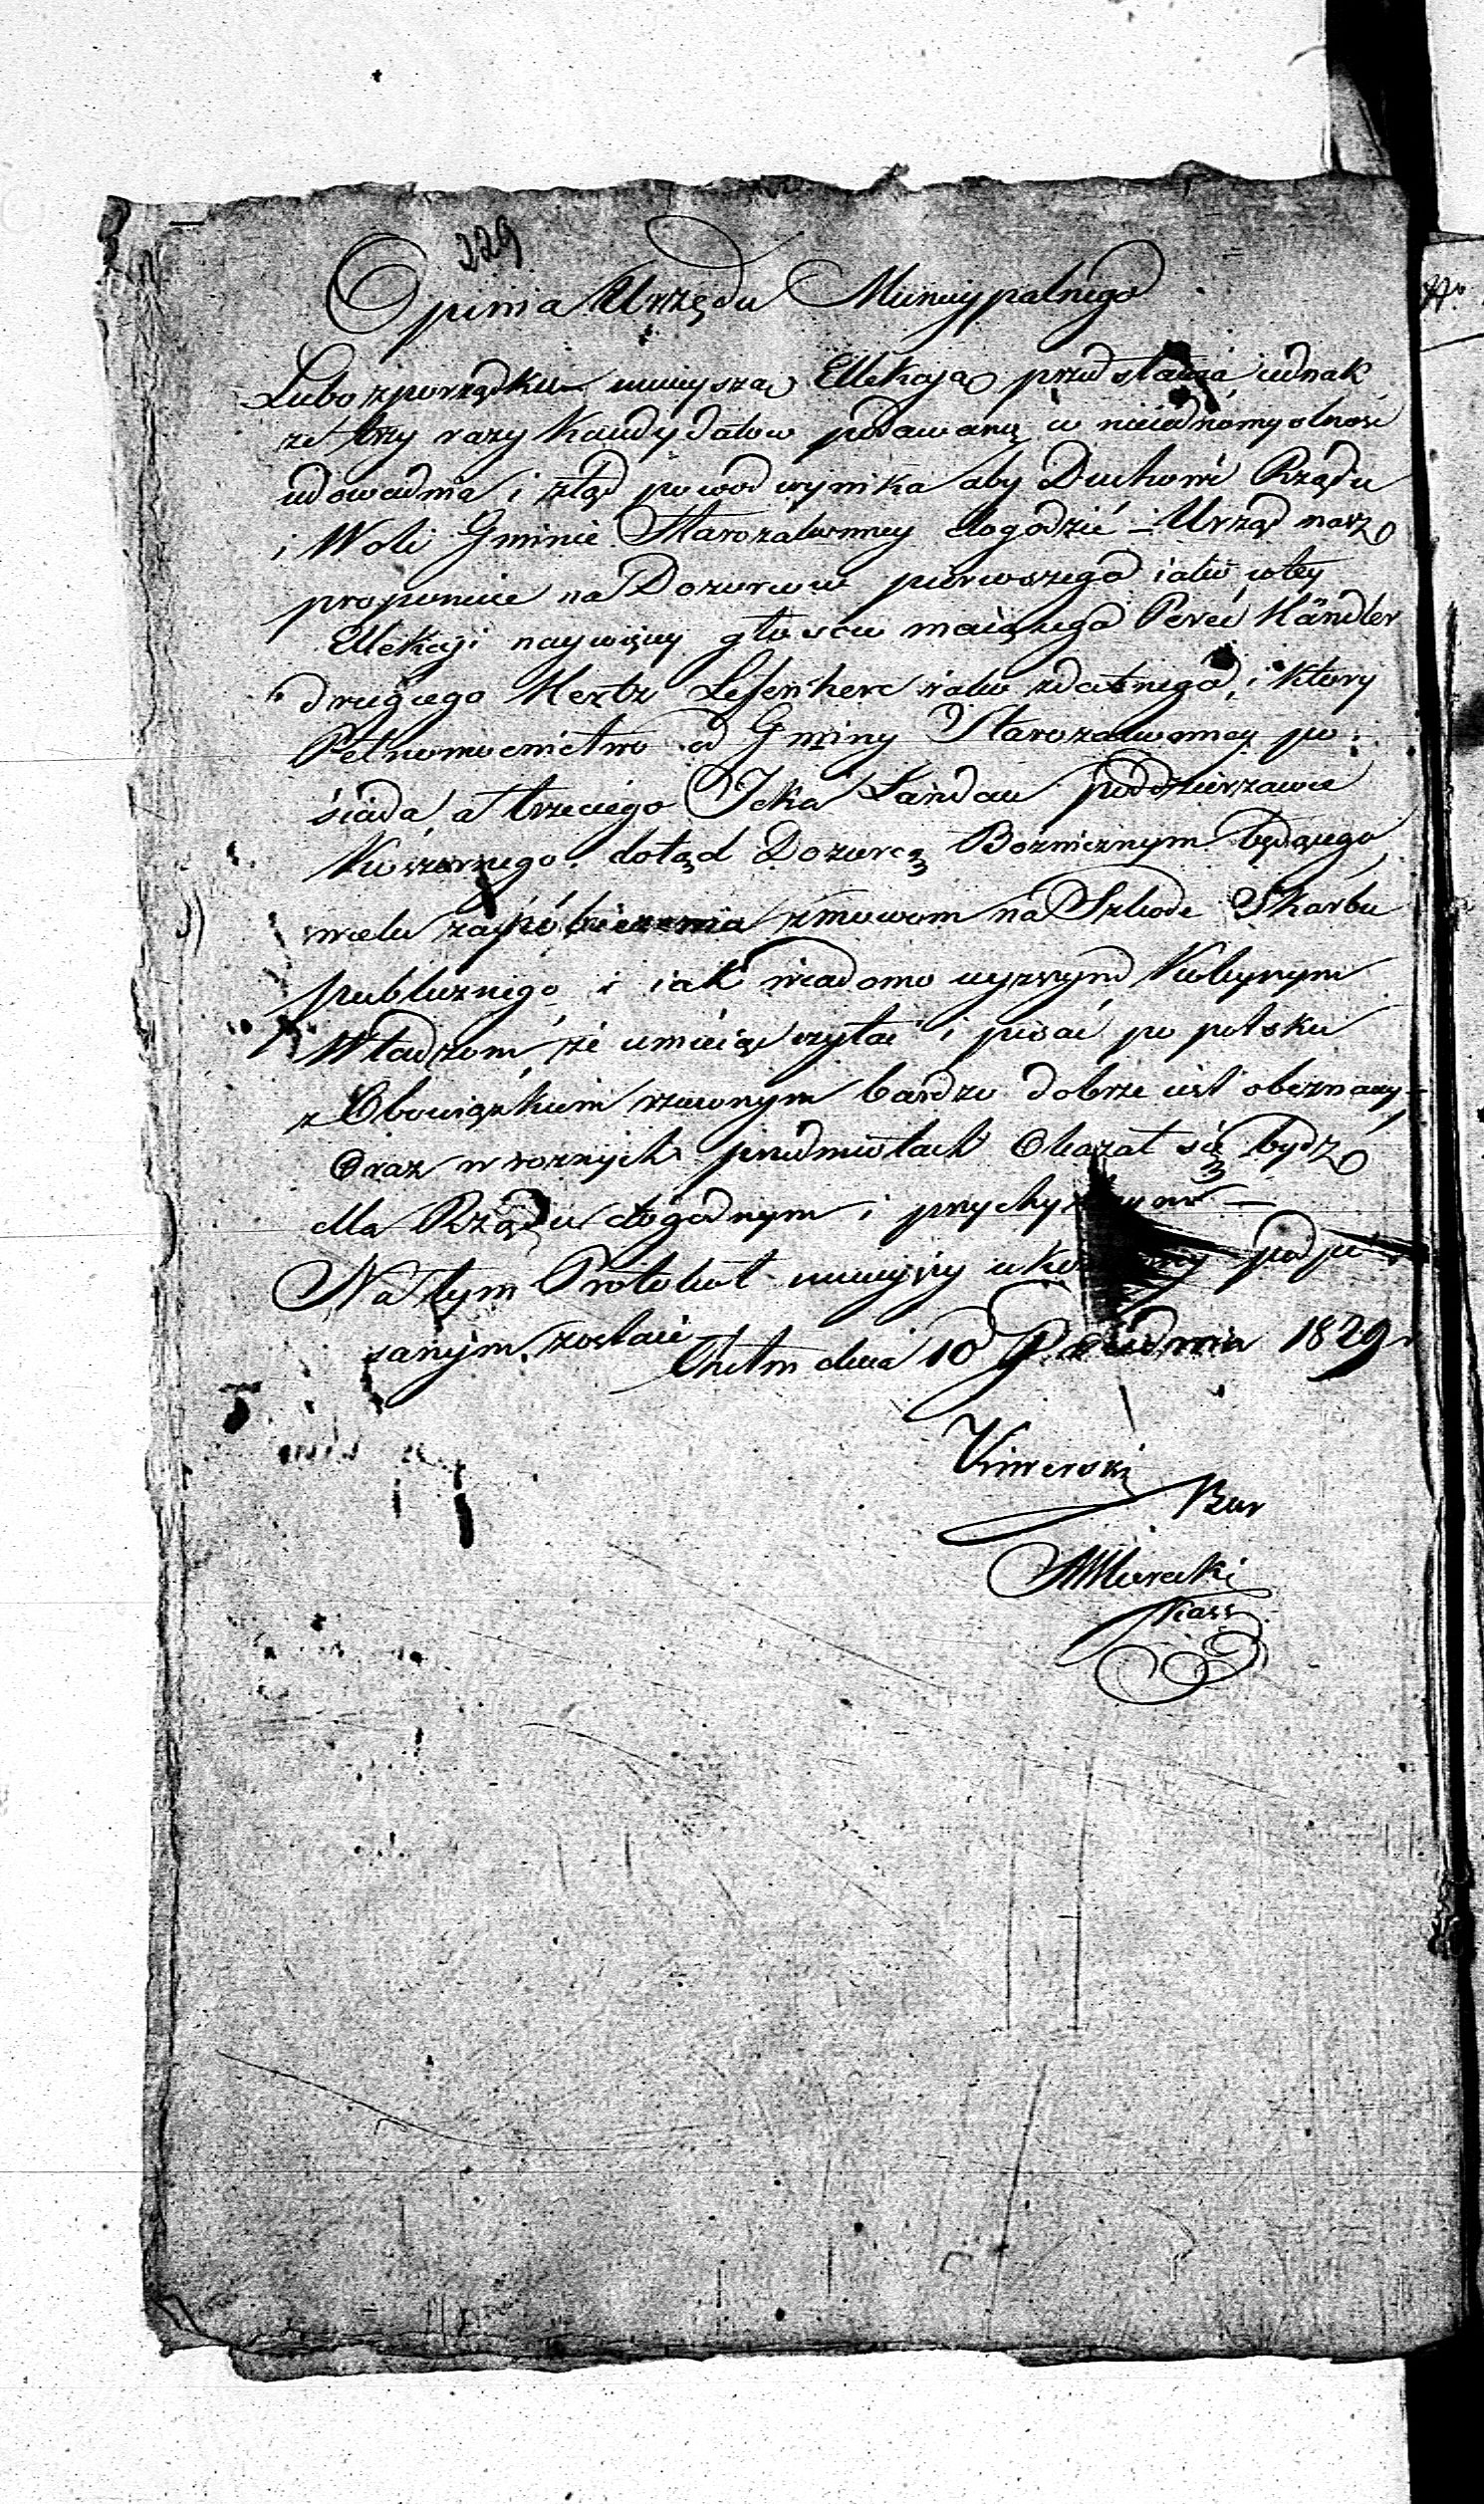 229
Opinia Urzędu Municypalnego
Lubo zporządku ninieyszą Elekcją przedstawia jednak
że trzy razy Kandydatow podawany a nieiednomyslnosc
udowadnia i ztąd powod wynika aby Duchowi Rządu
i Woli Gminie Starozakonney dogodzić – Urząd nasz
proponuie na Dozorcow pierwszego iako w tey
Elekcji naywięcey głosow maiącego Perec Händler
drugiego Hertz Lefenherc iako zdatnego, i który
Pełnomocnictwo od Gminy Starozakonney po:
siada, a trzeciego Icka Landau poddzierzawce
Koszernego dotąd Dozorcą Bożnicznym będącego
wielu zapobieżenia zmowom na Szkode Skarbu
publicznego i iak wiadomo wyższym Kolejnym
Władzom, że umieiąc czytać i pisać po polsku
z Obowiązkiem rzeczonym bardzo dobrze iest obeznany
Oraz w roznych przedmiotach Okazał się bydz
dla Rządu dogodnym i przychylnym –
Na tym Protokoł ninieyszy ukończony podpi
sanym zostaie
Chełm dnia 10 Grudnia 1829 r
Kiwerski
Bur
Murecki
Kass